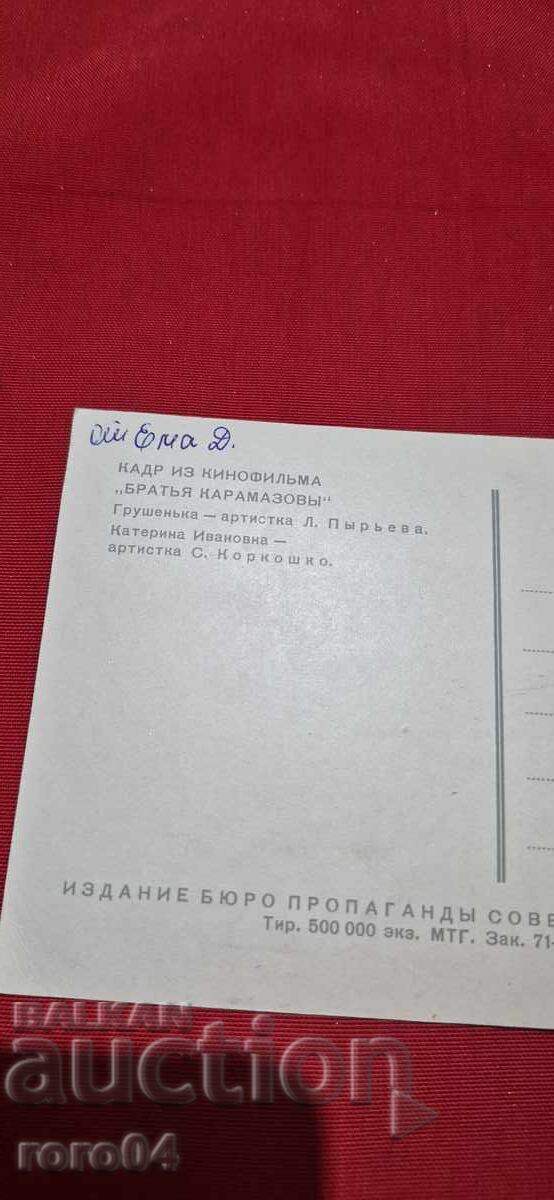 от Ема Д.
КАДР ИЗ КИНОФИЛЬМА
„БРАТЬЯ КАРАМАЗОВЫ"
Грушенька — артистка Л. Пырьева.
Катерина Ивановна —
артистка С. Коркошко.
ИЗДАНИЕ БЮРО ПРОПАГАНДЫ СОВЕ
Тир. 500 000 экз. МТГ. Зак. 71-
BALKAN
auction
roro04